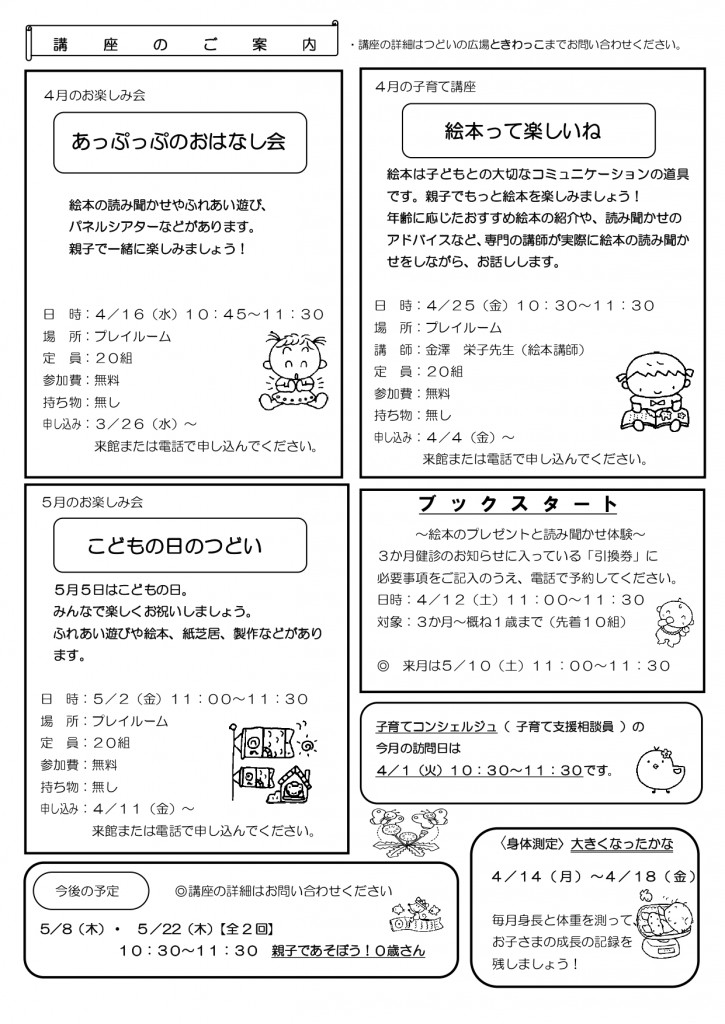 講座のご案内
・講座の詳細はつどいの広場ときわっこまでお問い合わせください。
４月のお楽しみ会
あっぷっぷのおはなし会
絵本の読み聞かせやふれあい遊び、
パネルシアターなどがあります。
親子で一緒に楽しみましょう！
日　時：４／１６（水）１０：４５～１１：３０
場　所：プレイルーム
定　員：２０組
参加費：無料
持ち物：無し
申し込み：３／２６（水）～
来館または電話で申し込んでください。
４月の子育て講座
絵本って楽しいね
絵本は子どもとの大切なコミュニケーションの道具
です。親子でもっと絵本を楽しみましょう！
年齢に応じたおすすめ絵本の紹介や、読み聞かせの
アドバイスなど、専門の講師が実際に絵本の読み聞か
せをしながら、お話しします。
日　時：４／２５（金）１０：３０～１１：３０
場　所：プレイルーム
講　師：金澤　栄子先生（絵本講師）
定　員：２０組
参加費：無料
持ち物：無し
申し込み：４／４（金）～
来館または電話で申し込んでください。
５月のお楽しみ会
こどもの日のつどい
５月５日はこどもの日。
みんなで楽しくお祝いしましょう。
ふれあい遊びや絵本、紙芝居、製作などがあり
ます。
日　時：５／２（金）１１：００～１１：３０
場　所：プレイルーム
定　員：２０組
参加費：無料
持ち物：無し
申し込み：４／１１（金）～
来館または電話で申し込んでください。
ブックスタート
～絵本のプレゼントと読み聞かせ体験～
３か月健診のお知らせに入っている「引換券」に
必要事項をご記入のうえ、電話で予約してください。
日時：４／１２（土）１１：００～１１：３０
対象：３か月～概ね１歳まで（先着１０組）
◎　来月は５／１０（土）１１：００～１１：３０
子育てコンシェルジュ（子育て支援相談員）の
今月の訪問日は
４／１（火）１０：３０～１１：３０です。
〈身体測定〉大きくなったかな
４／１４（月）～４／１８（金）
毎月身長と体重を測って
お子さまの成長の記録を
残しましょう！
今後の予定
◎講座の詳細はお問い合わせください
５／８（木）・　５／２２（木）【全２回】
１０：３０～１１：３０　親子であそぼう！０歳さん